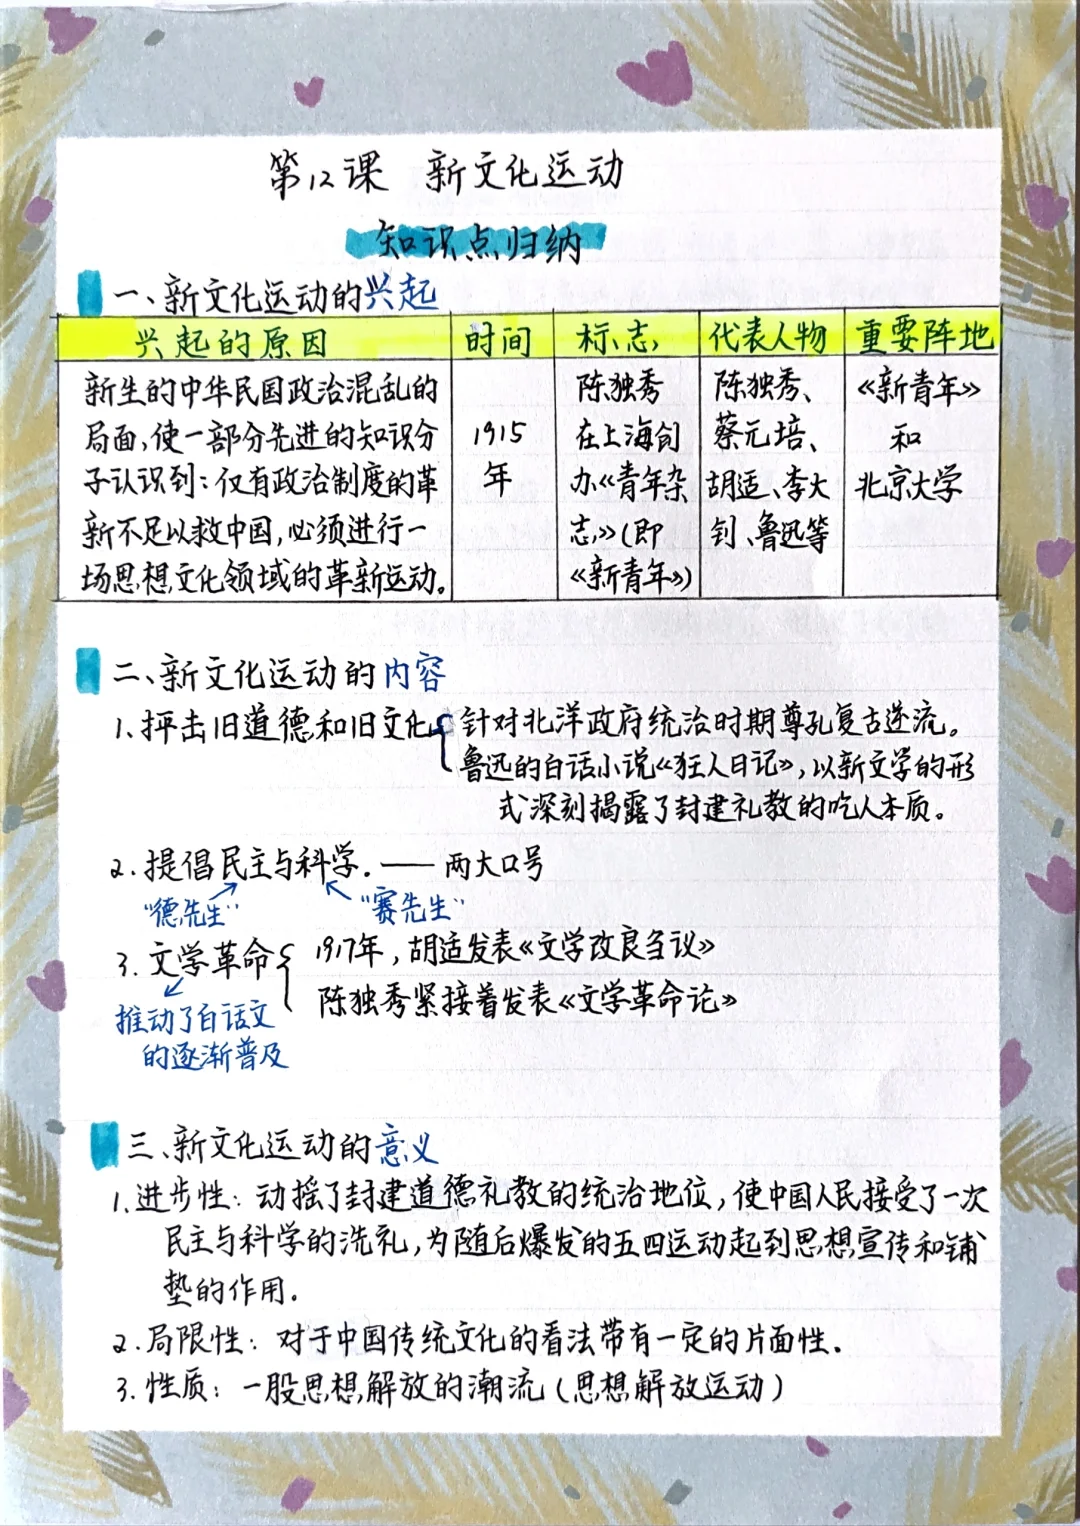 第12课 新文化运动
知识点归纳
一、新文化运动的兴起
兴起的原因 时间 标志 代表人物 重要阵地
新生的中华民国政治混乱的
局面,使一部分先进的知识分
子认识到:仅有政治制度的革
新不足以救中国,必须进行一
场思想文化领域的革新运动。
1915
年
陈独秀
在上海创
办《青年杂
志》(即
《新青年》)
陈独秀、
蔡元培、
胡适、李大
钊、鲁迅等
《新青年》
和
北京大学
二、新文化运动的内容
1.抨击旧道德和旧文化
针对北洋政府统治时期尊孔复古逆流。
鲁迅的白话小说《狂人日记》,以新文学的形
式深刻揭露了封建礼教的吃人本质。
2.提倡民主与科学.——两大口号
“德先生” “赛先生”
3.文学革命
1917年,胡适发表《文学改良刍议》
陈独秀紧接着发表《文学革命论》
推动了白话文
的逐渐普及
三、新文化运动的意义
1.进步性:动摇了封建道德礼教的统治地位,使中国人民接受了一次
民主与科学的洗礼,为随后爆发的五四运动起到思想宣传和铺
垫的作用.
2.局限性:对于中国传统文化的看法带有一定的片面性.
3.性质:一股思想解放的潮流(思想解放运动)